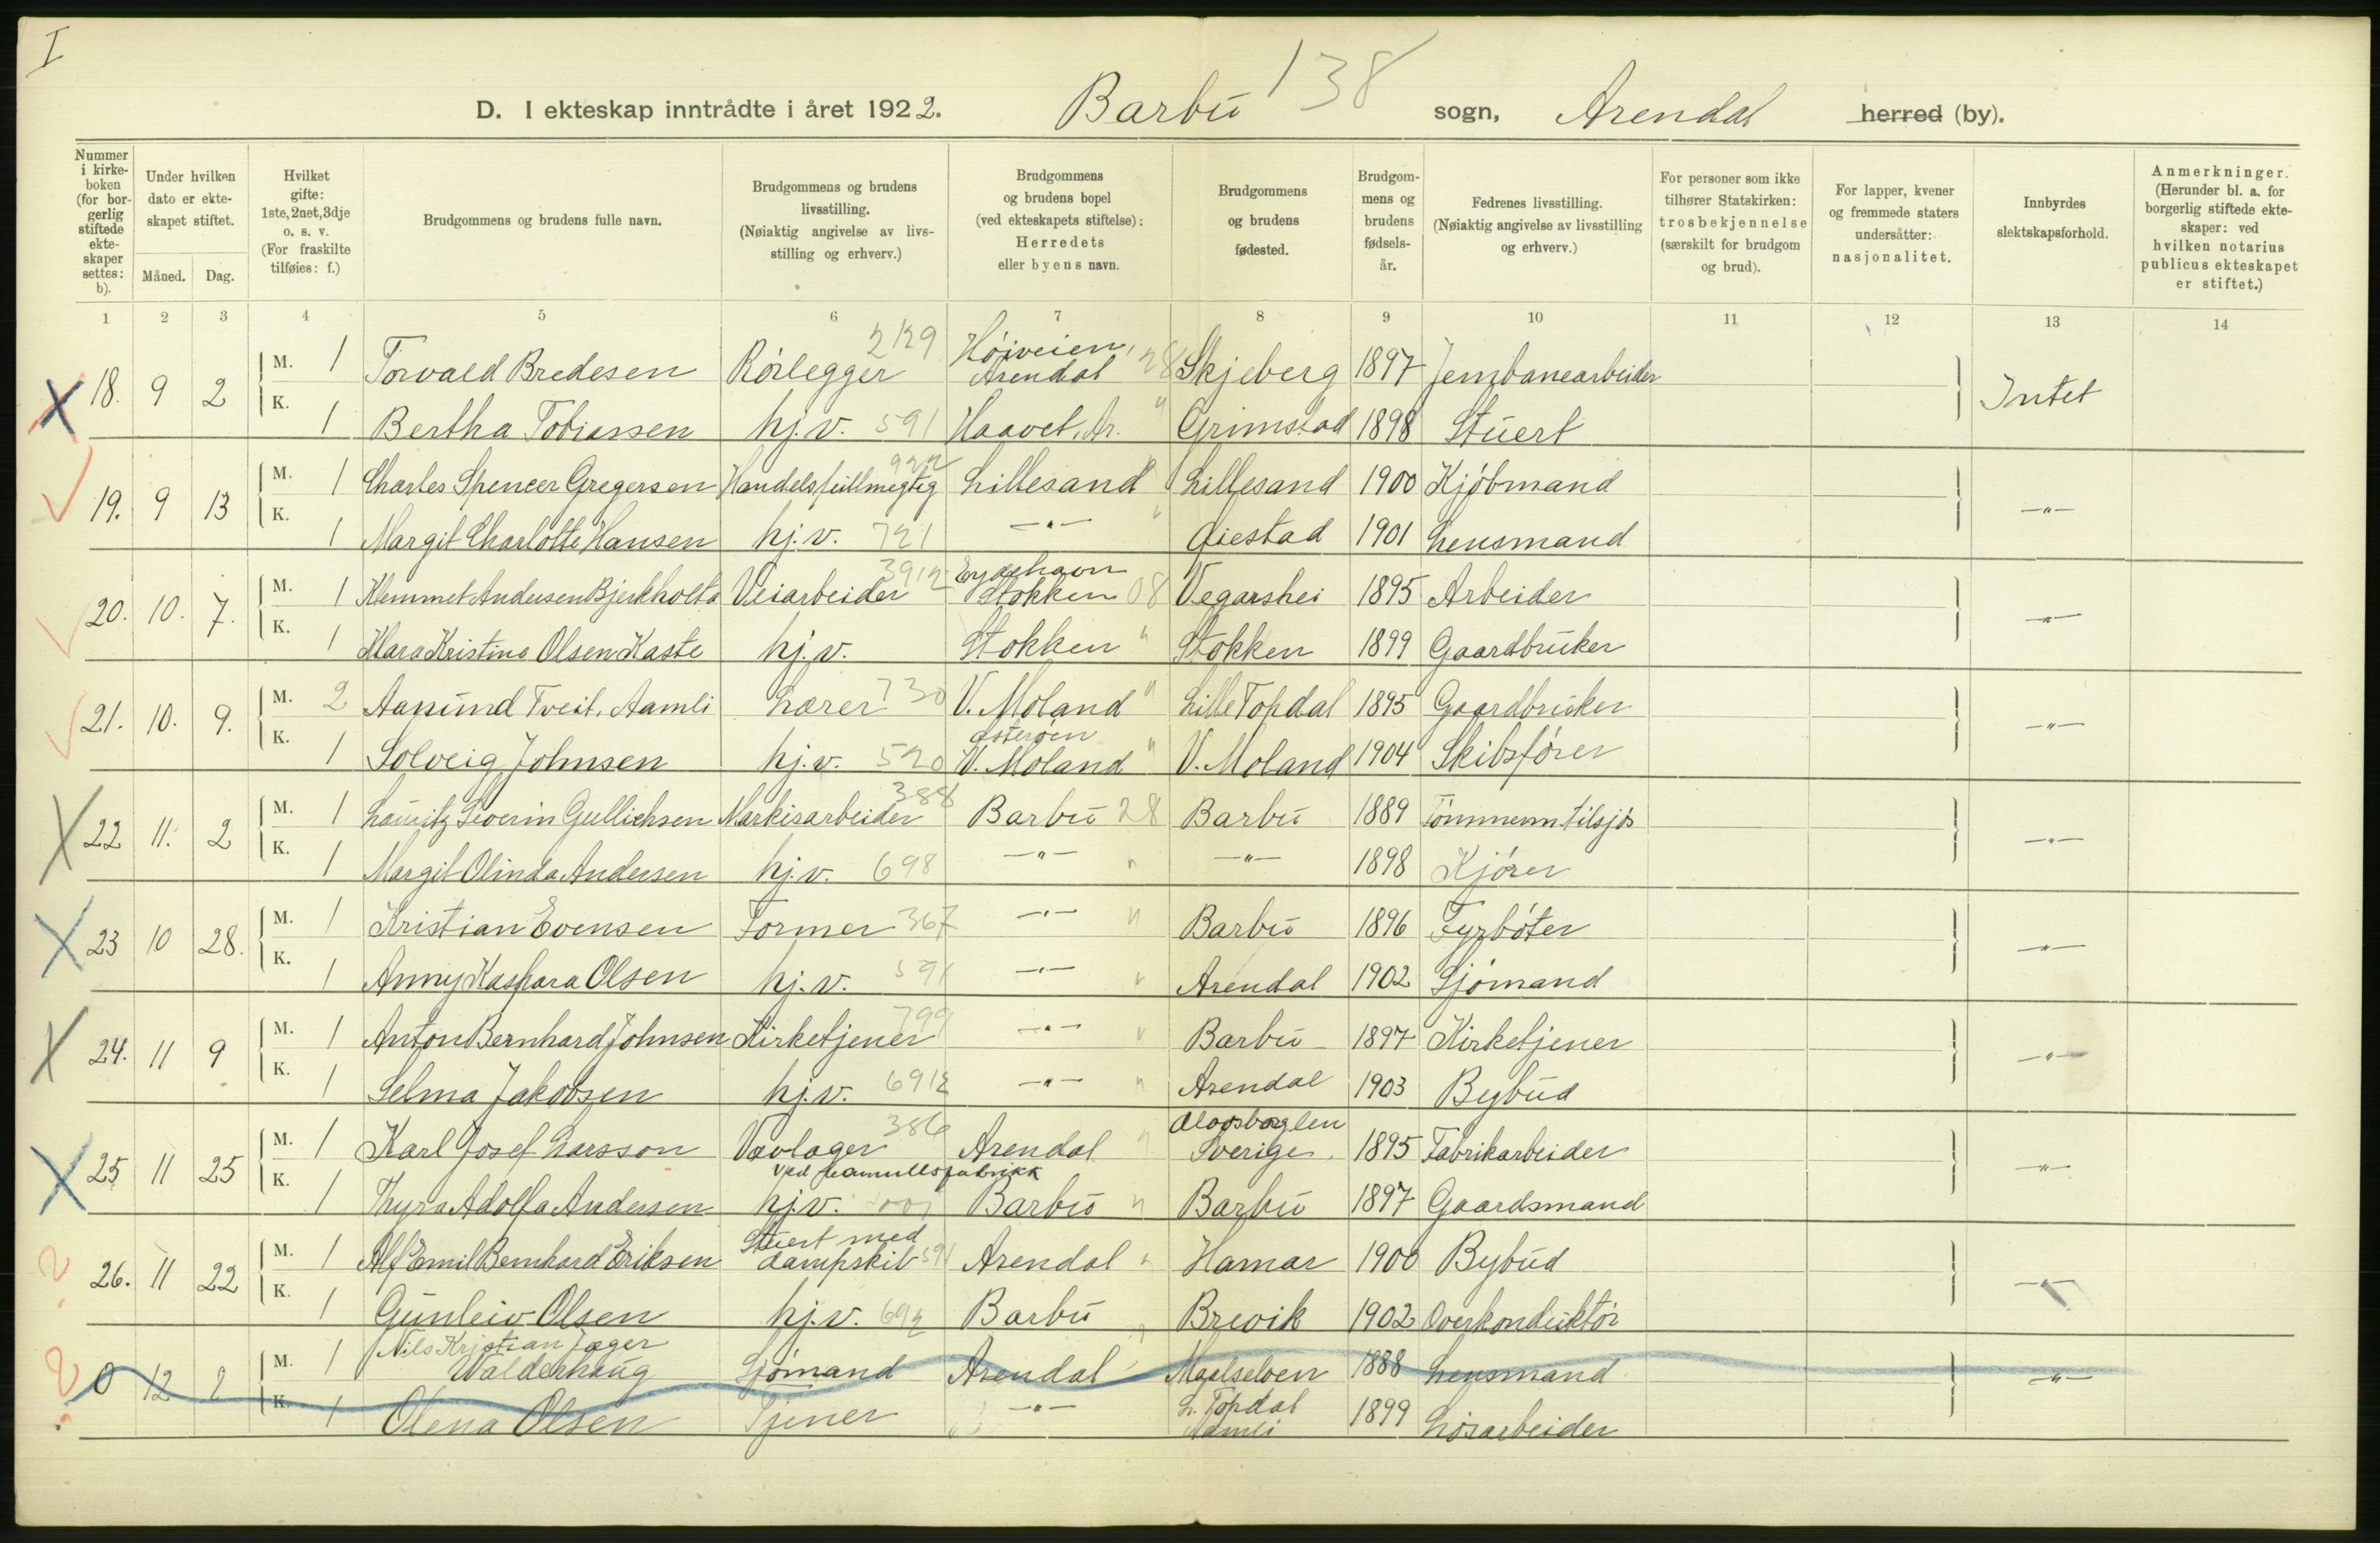 I
138
D. I ekteskap inntrådte i året 1922. Barbu sogn, Arendal herred (by).
Nummer i kirkeboken (for borgerlig stiftede ekteskaper settes: b).
Under hvilken dato er ekteskapet stiftet.
Måned. Dag.
Hvilket gifte: 1ste, 2net, 3dje o. s. v. (For fraskilte tilføies: f.)
Brudgommens og brudens fulle navn.
Brudgommens og brudens livsstilling. (Nøiaktig angivelse av livsstilling og erhverv.)
Brudgommens og brudens bopel (ved ekteskapets stiftelse): Herredets eller byens navn.
Brudgommens og brudens fødested.
Brudgommens og brudens fødselsår.
Fedrenes livsstilling. (Nøiaktig angivelse av livsstilling og erhverv.)
For personer som ikke tilhører Statskirken: trosbekjennelse (særskilt for brudgom og brud).
For lapper, kvener og fremmede staters undersåtter: nasjonalitet.
Innbyrdes slektskapsforhold.
Anmerkninger. (Herunder bl. a. for borgerlig stiftede ekteskaper: ved hvilken notarius publicus ekteskapet er stiftet.)
1 2 3 4 5 6 7 8 9 10 11 12 13 14
18. 9 2 M. 1 Torvald Bredesen Rørlegger Høiveien, Arendal 28 Skjeberg 1897 Jernbanearbeider Intet
K. 1 Bertha Tobiassen hj.v. 591 Haavet, Ar. " Grimstad 1898 Stuert
19. 9 13 M. 1 Charles Spencer Gregersen Handelsfullmegtig 922 Lillesand Lillesand 1900 Kjøbmand —"—
K. 1 Margit Charlotte Hansen hj.v. 721 —"— " Øiestad 1901 Lensmand
20. 10. 7. M. 1 Klemmet Andersen Bjerkholta Veiarbeider 3912 Eydehavn Stokken 08 Vegarshei 1895 Arbeider —"—
K. 1 Klara Kristine Olsen Kaste hj.v. Stokken " Stokken 1899 Gaardbruker
21. 10. 9. M. 2 Aanund Tveit, Aamli Lærer 730 V. Moland " Lille Topdal 1895 Gaardbruker —"—
K. 1 Solveig Johnsen hj.v. 520 V. Moland " V. Moland 1904 Skibsfører
22 11. 2 M. 1 Lauritz Severin Gullichsen Markisarbeider 388 Barbu 28 Barbu 1889 Tømmerm. tilsjøs —"—
K. 1 Margit Olinda Andersen hj.v. 698 —"— " —"— 1898 Kjører
23 10 28. M. 1 Kristian Evensen Former 367 —"— " Barbu 1896 Fyrbøter —"—
K. 1 Anny Kaspara Olsen hj.v. 591 —"— " Arendal 1902 Sjømand
24. 11 9 M. 1 Anton Bernhard Johnsen Kirketjener 799 —"— " Barbu 1897 Kirketjener —"—
K. 1 Selma Jakobsen hj.v. 6912 —"— " Arendal 1903 Bybud
25 11 25 M. 1 Karl Josef Larsson Vævlager 386 Arendal " Sverige 1895 Fabrikarbeider —"—
K. 1 Thyra Adolfa Andersen hj.v. Barbu " Barbu 1897 Gaardsmand
26. 11 22 M. 1 Alf Emil Bernhard Eriksen Stuert med dampskib 591 Arendal " Hamar 1900 Bybud —"—
K. 1 Gunleiv Olsen hj.v. 692 Barbu " Brevik 1902 Overkonduktør
0 12 2 M. 1 Nils Kristian Jæger Walderhaug Sjømand Arendal Maalselven 1888 Lensmand —"—
K. 1 Olena Olsen Tjener —"— L. Topdal Aamli 1899 Løsarbeider